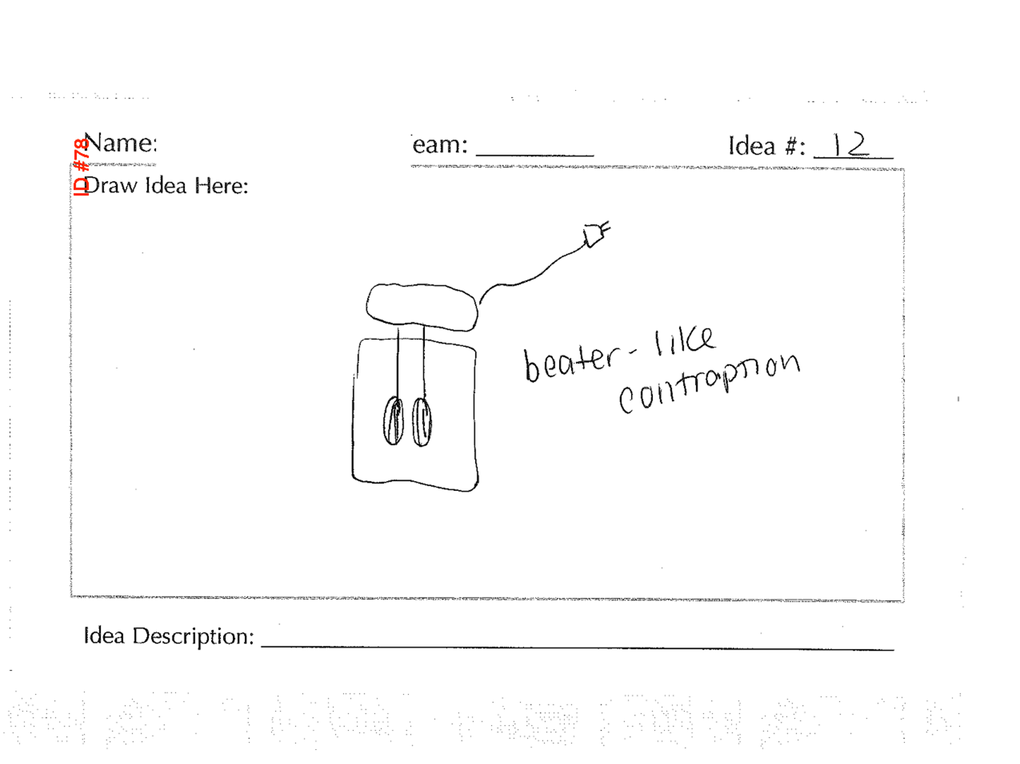 ID #78
Name:
eam:
Idea #: 12
Draw Idea Here:
beater-like
contraption
Idea Description: